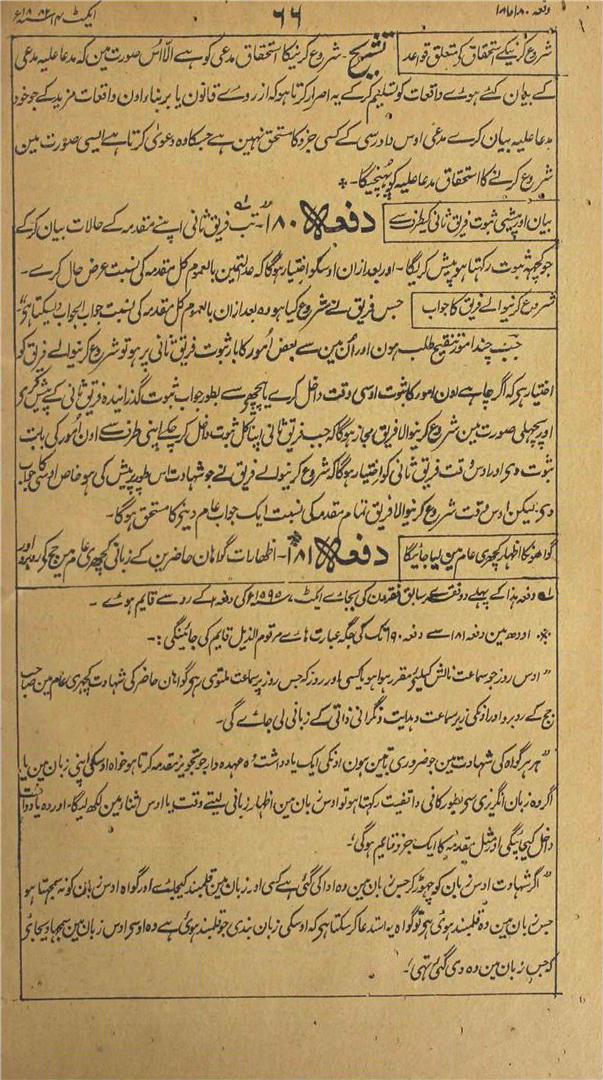 دفعہ ۱۸۰ و ۱۸۱ ۶۶ ایکٹ ۱۴ سنہ ۱۸۸۲ع
شروع کرنیکے استحقاق کے متعلق قواعد تشریح - شروع کرنیکا استحقاق مدعی کو ہے الّا اُس صورت مین کہ مدعا علیہ مدعی
کے بیان کئے ہوے واقعات کو تسلیم کرکے یہ اصرار کرتا ہو کہ از روے قانون یا بر بناء اون واقعات مزید کے جو خود
مدعا علیہ بیان کرے مدعی اوس دادرسی کے کسی جزو کا مستحق نہین ہے جسکا وہ دعویٰ کرتا ہے ایسی صورت مین
شروع کرنے کا استحقاق مدعا علیہ کو پہنچیگا - *
بیان اور پیشی ثبوت فریق ثانی کیطرف سے دفعہ ۱۸۰ - تب فریق ثانی اپنے مقدمہ کے حالات بیان کرکے
جو کچہہ ثبوت رکہتا ہو پیش کریگا - اور بعد ازان اوسکو اختیار ہوگا کہ عدالت مین بالعموم کل مقدمہ کی نسبت عرض حال کرے -
شروع کرنیوالے فریق کا جواب جس فریق نے شروع کیا ہو وہ بعد ازان بالعموم کل مقدمہ کی نسبت جواب الجواب دیسکتا ہے
جب چند امور تنقیح طلب ہون اور اُن مین سے بعض اُمور کا بار ثبوت فریق ثانی پر ہو تو شروع کرنیوالے فریق کو
اختیار ہے کہ اگر چاہے اون امور کا ثبوت اوسی وقت داخل کرے یا پیچھے سے بطور جواب ثبوت گذرانیدہ فریق ثانی کے پیش کرے
اور پچہلی صورت مین شروع کرنیوالا فریق مجاز ہوگا کہ جب فریق ثانی اپنا کل ثبوت داخل کرچکے اپنی طرف سے اون اُمور کی بابت
ثبوت دے اور اوسوقت فریق ثانی کو اختیار ہوگا کہ شروع کرنیوالے فریق نے جو شہادت اس طور پر پیش کی ہو خاص اوسکا جواب
دے لیکن اوسوقت شروع کرنیوالا فریق تمام مقدمہ کی نسبت ایک جواب عام دینے کا مستحق ہوگا -
گواہونکا اظہار کچہری عام مین لیا جائیگا دفعہ ۱۸۱ - اظہارات گواہان حاضرین کے زبانی کچہری عام مین جج کی روبرو اور
دفعہ ہذا کے پہلے دو فقرے سابق فقرون کی بجاے ایکٹ ۷ کی دفعہ کے رو سے قایم ہوے -
اودہ مین دفعہ ۱۸۱ سے دفعہ ۱۹۰ تک کی جگہ عبارت ہاے مرقوم الذیل قایم کی جائینگی :-
” اوس روز جو سماعت نالش کیلئے مقرر ہوا ہو یا کسی اور روز کہ جس روز پر سماعت ملتوی رہے گواہان حاضر کی شہادت کچہری عام مین صاحب
جج کے روبرو اور اونکی زیر سماعت و ہدایت و نگرانی ذاتی کے زبانی لی جاے گی -
” ہر ہر گواہ کی شہادت مین جو ضروری باتین ہون اونکی ایک یادداشت وہ عہدہ دار جو تجویز مقدمہ کرتا ہو خواہ اوسکی اپنی زبان مین یا
اگر وہ زبان انگریزی سے بطور کافی واقفیت رکہتا ہو تو اوس زبان مین اظہار زبانی لیتے وقت یا اوس اثنا مین لکھ لیگا - اور وہ یادداشت
داخل کیجائیگی اور مثل مقدمہ کا ایک جزو قایم ہوگی -
” اگر شہادت اوس زبان کو چہوڑ کر جس زبان مین وہ ادا کی گئی ہے کسی اور زبان مین قلمبند کیجاے اور گواہ اوس زبان کو نہ سمجہتا ہو
جس زبان مین وہ قلمبند ہوئی ہے تو گواہ یہ استدعا کرسکتا ہے کہ اوسکی زبان بندی جو قلمبند ہوئی ہے وہ اوسے اوس زبان مین سمجہا دیجائے
کہ جس زبان مین وہ دی گئی تہی -